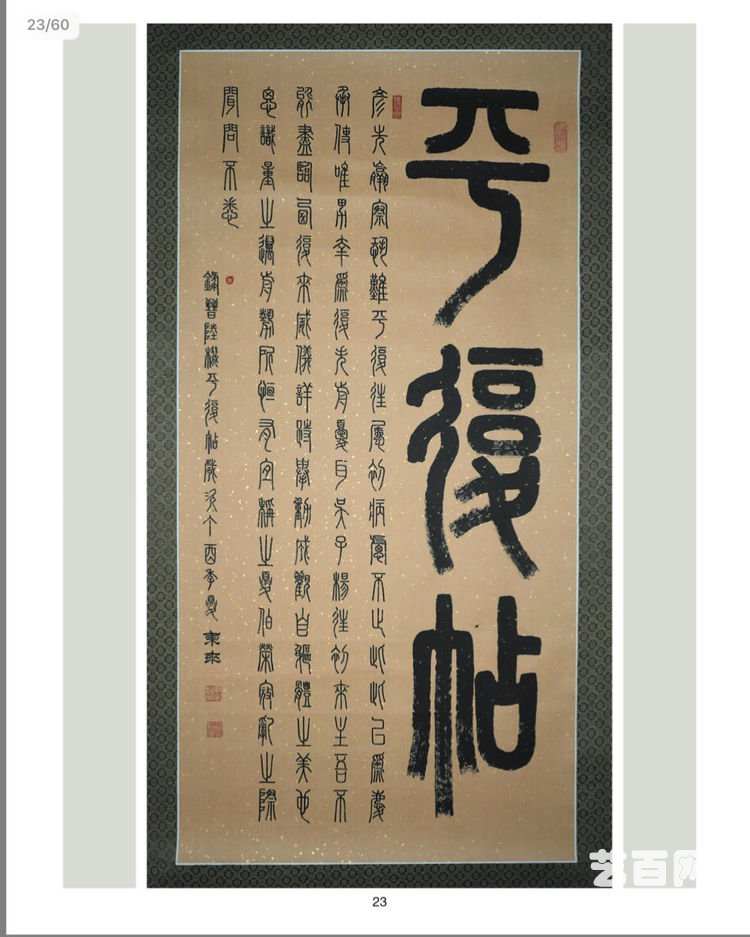 23/60
平復帖
彦先羸瘵恐難平復往屬初病慮不止此此已爲慶
承使唯男幸爲復失前憂耳吳子楊往初來主吾不
能盡臨西復來威儀詳跱舉動成觀自軀體之美也
思識量之邁前勢所恒有宜稱之夏伯榮寇亂之際
聞問不悉
錄晉陸機平復帖歲次丁酉季夏
艺百网
23